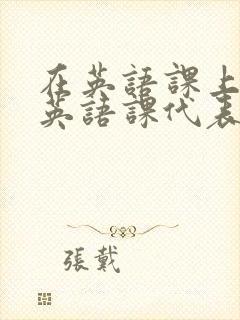 在英語課上
英語課代表
張戴